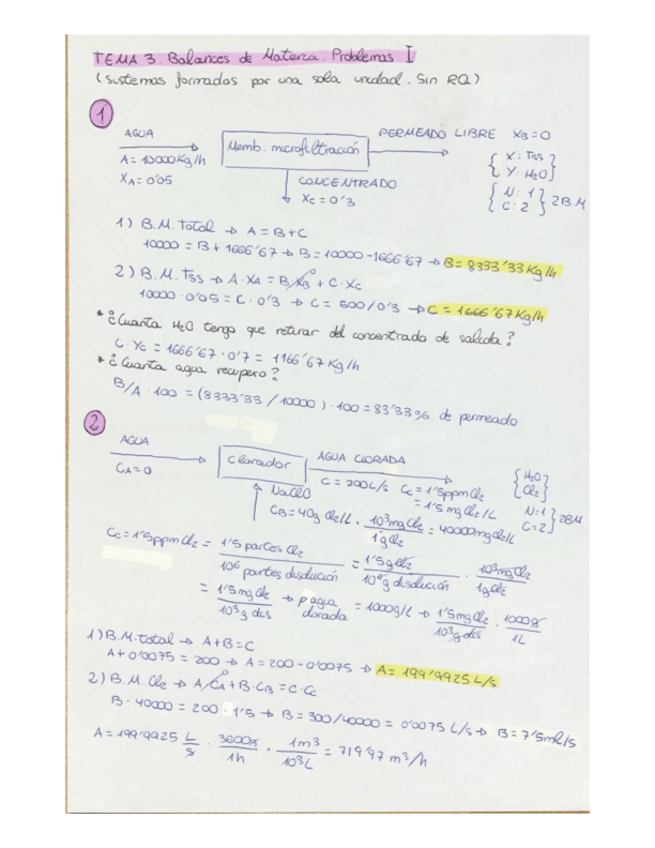 TEMA 3. Balances de Materia. Problemas I
(Sistemas formados por una sola unidad. Sin RQ)
1
AGUA
A = 10000 Kg/h
XA = 0'05
Memb. microfiltración
PERMEADO LIBRE XB = 0
CONCENTRADO
XC = 0'3
{ X: TSS
Y: H2O }
{ N: 1
C: 2 } 2 B.M
1) B.M. Total → A = B + C
10000 = B + 1666'67 → B = 10000 - 1666'67 → B = 8333'33 Kg/h
2) B.M. TSS → A · XA = B · XB⁰ + C · XC
10000 · 0'05 = C · 0'3 → C = 500/0'3 → C = 1666'67 Kg/h
* ¿Cuanta H2O tengo que retirar del concentrado de salida?
C · YC = 1666'67 · 0'7 = 1166'67 Kg/h
* ¿Cuanta agua recupero?
B/A · 100 = (8333'33 / 10000) · 100 = 83'33% de permeado
2
AGUA
CA = 0
Clorador
AGUA CLORADA
C = 200 L/s CC = 1'5 ppm Cl2
= 1'5 mg Cl2/L
{ H2O
Cl2 }
N = 1
C = 2 } 2BM
NaClO
CB = 40g Cl2/L · 10³mg Cl2 / 1g Cl2 = 40000mg Cl2/L
CC = 1'5 ppm Cl2 = 1'5 partes Cl2 / 10⁶ partes disolución = 1'5g Cl2 / 10⁶g disolución · 10³mg Cl2 / 1g Cl2
= 1'5 mg Cl2 / 10³g dis → ρ agua clorada = 1000g/L → 1'5mg Cl2 / 10³g dis · 1000g / 1L
1) B.M. Total → A + B = C
A + 0'0075 = 200 → A = 200 - 0'0075 → A = 199'9925 L/s
2) B.M Cl2 → A · CA⁰ + B · CB = C · CC
B · 40000 = 200 · 1'5 → B = 300/40000 = 0'0075 L/s → B = 7'5ml/s
A = 199'9925 L/s · 3600s / 1h · 1m³ / 10³L = 719'97 m³/h